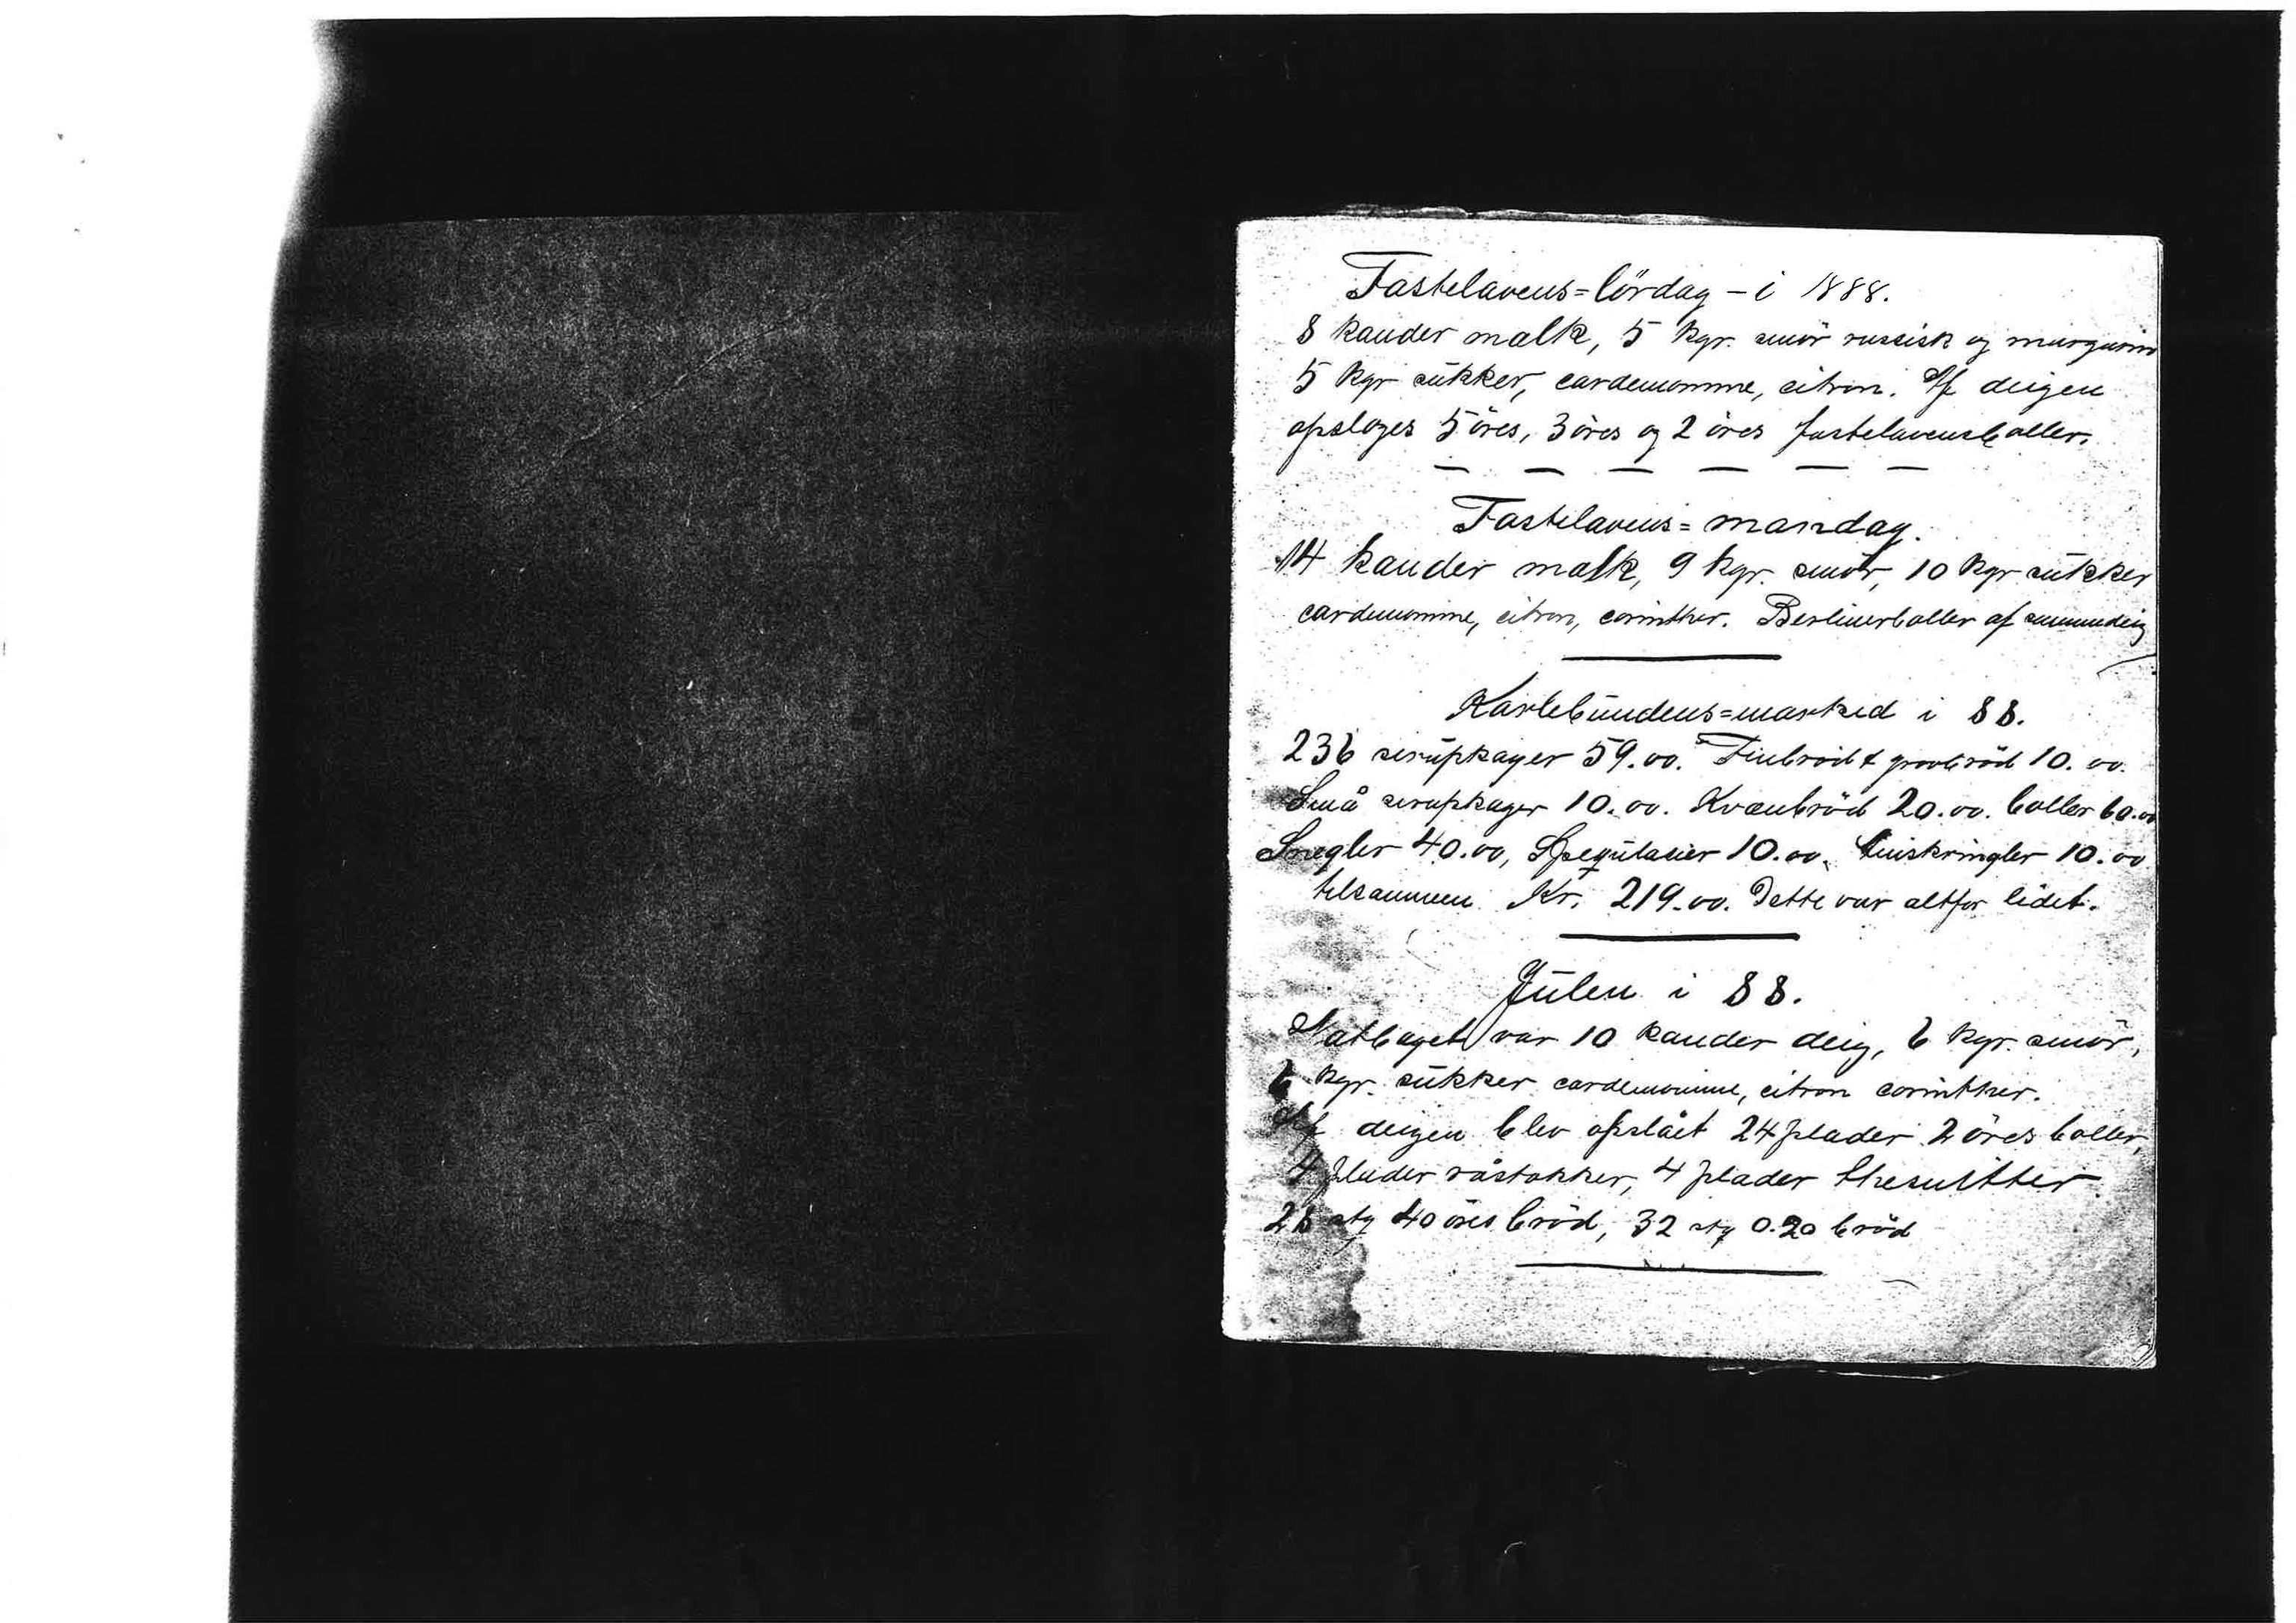 Fastelavens=lördag – i 1888.
8 kander mælk, 5 kgr. smör russisk og margarin
5 kgr sukker, cardemomme, citron. Af deigen
opsloges 5 öres, 3 öres og 2 öres fastelavensboller.
Fastelavens=mandag.
14 kander mælk, 9 kgr. smör, 10 kgr sukker
cardemomme, citron, corinther. Berlinerboller af sammedeig
marked i 88.
236 sirupkager 59.00. Finbröd & grovbröd 10.00.
Små sirupkager 10.00. Kvænbröd 20.00. boller 60.00
Snegler 40.00, Spequlasier 10.00. kringler 10.00
tilsammen Kr. 219.00. Dette var altfor lidet.
Julen i 88.
Natbaget var 10 kander deig, 6 kgr. smör,
6 kgr. sukker cardemomme, citron corinther.
Af deigen blev opslået 24 plader 2 öres boller,
4 plader råstokker, 4 plader
28 stq 40 öres bröd, 32 stq 0.20 bröd